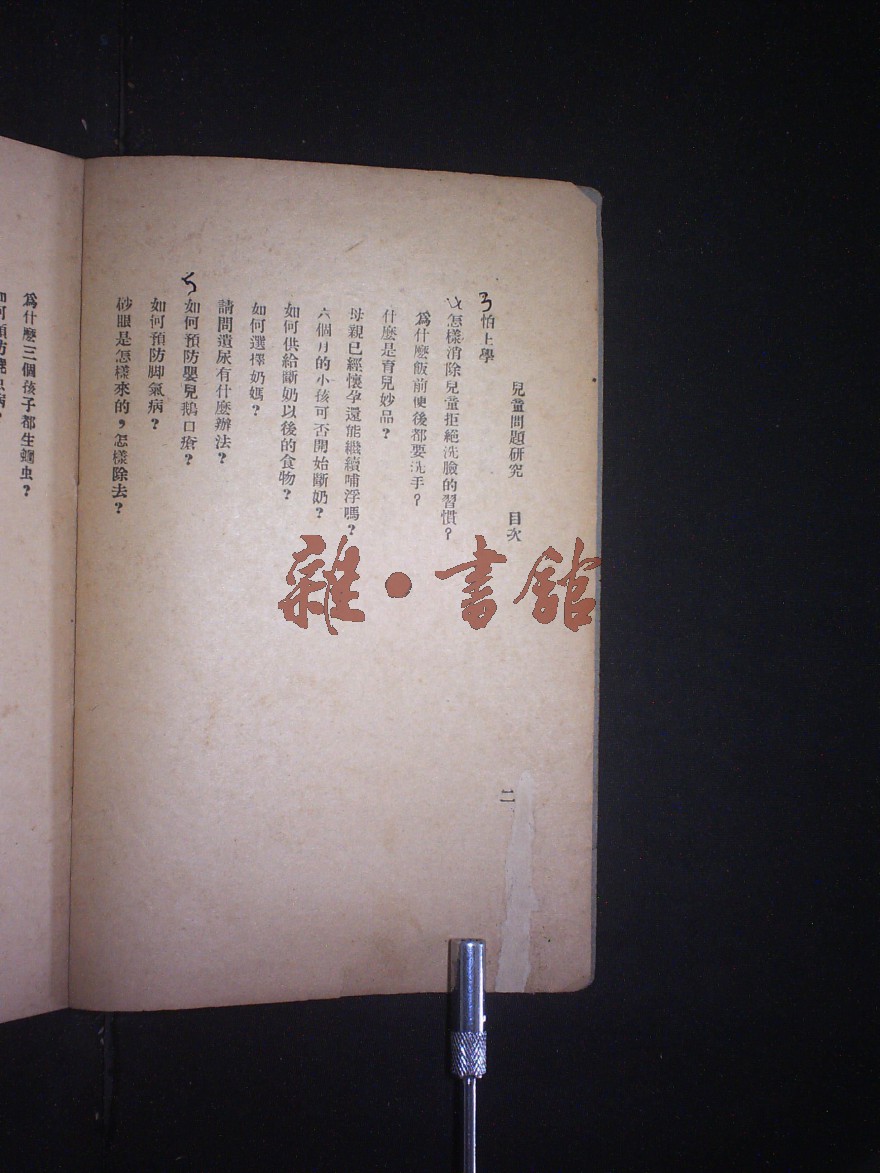 兒童問題研究 目次
3 怕上學
怎樣消除兒童拒絕洗臉的習慣?
為什麼飯前便後都要洗手?
什麼是育兒妙品?
母親已經懷孕還能繼續哺浮嗎?
六個月的小孩可否開始斷奶?
如何供給斷奶以後的食物?
如何選擇奶媽?
請問遺尿有什麼辦法?
5 如何預防嬰兒鵝口瘡?
如何預防脚氣病?
砂眼是怎樣來的,怎樣除去?
二
為什麼三個孩子都生蟯虫?
雜·書館